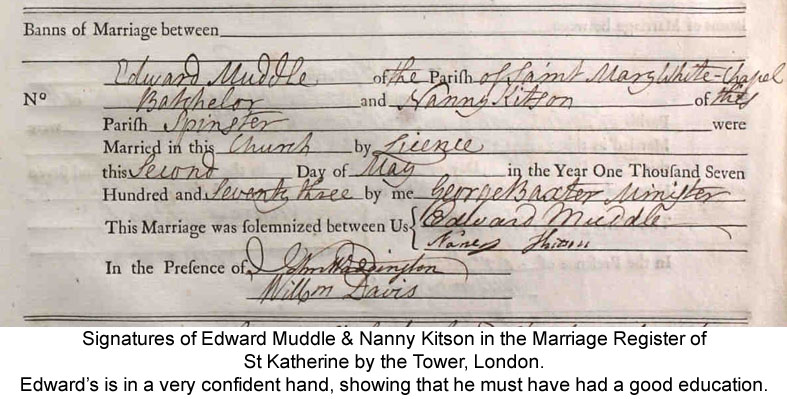 Banns of Marriage between
Edward Muddle of the Pariſh of Saint Mary White-Chapel
No Batchelor and Nanny Kitson of this
Pariſh Spinster were
Married in this Church by Licence
this Second Day of May in the Year One Thouſand Seven
Hundred and Seventy three by me George Baxter Minister
This Marriage was ſolemnized between Us Edward Muddle
In the Preſence of John Waddington
Willm Davis
Signatures of Edward Muddle & Nanny Kitson in the Marriage Register of
St Katherine by the Tower, London.
Edward's is in a very confident hand, showing that he must have had a good education.